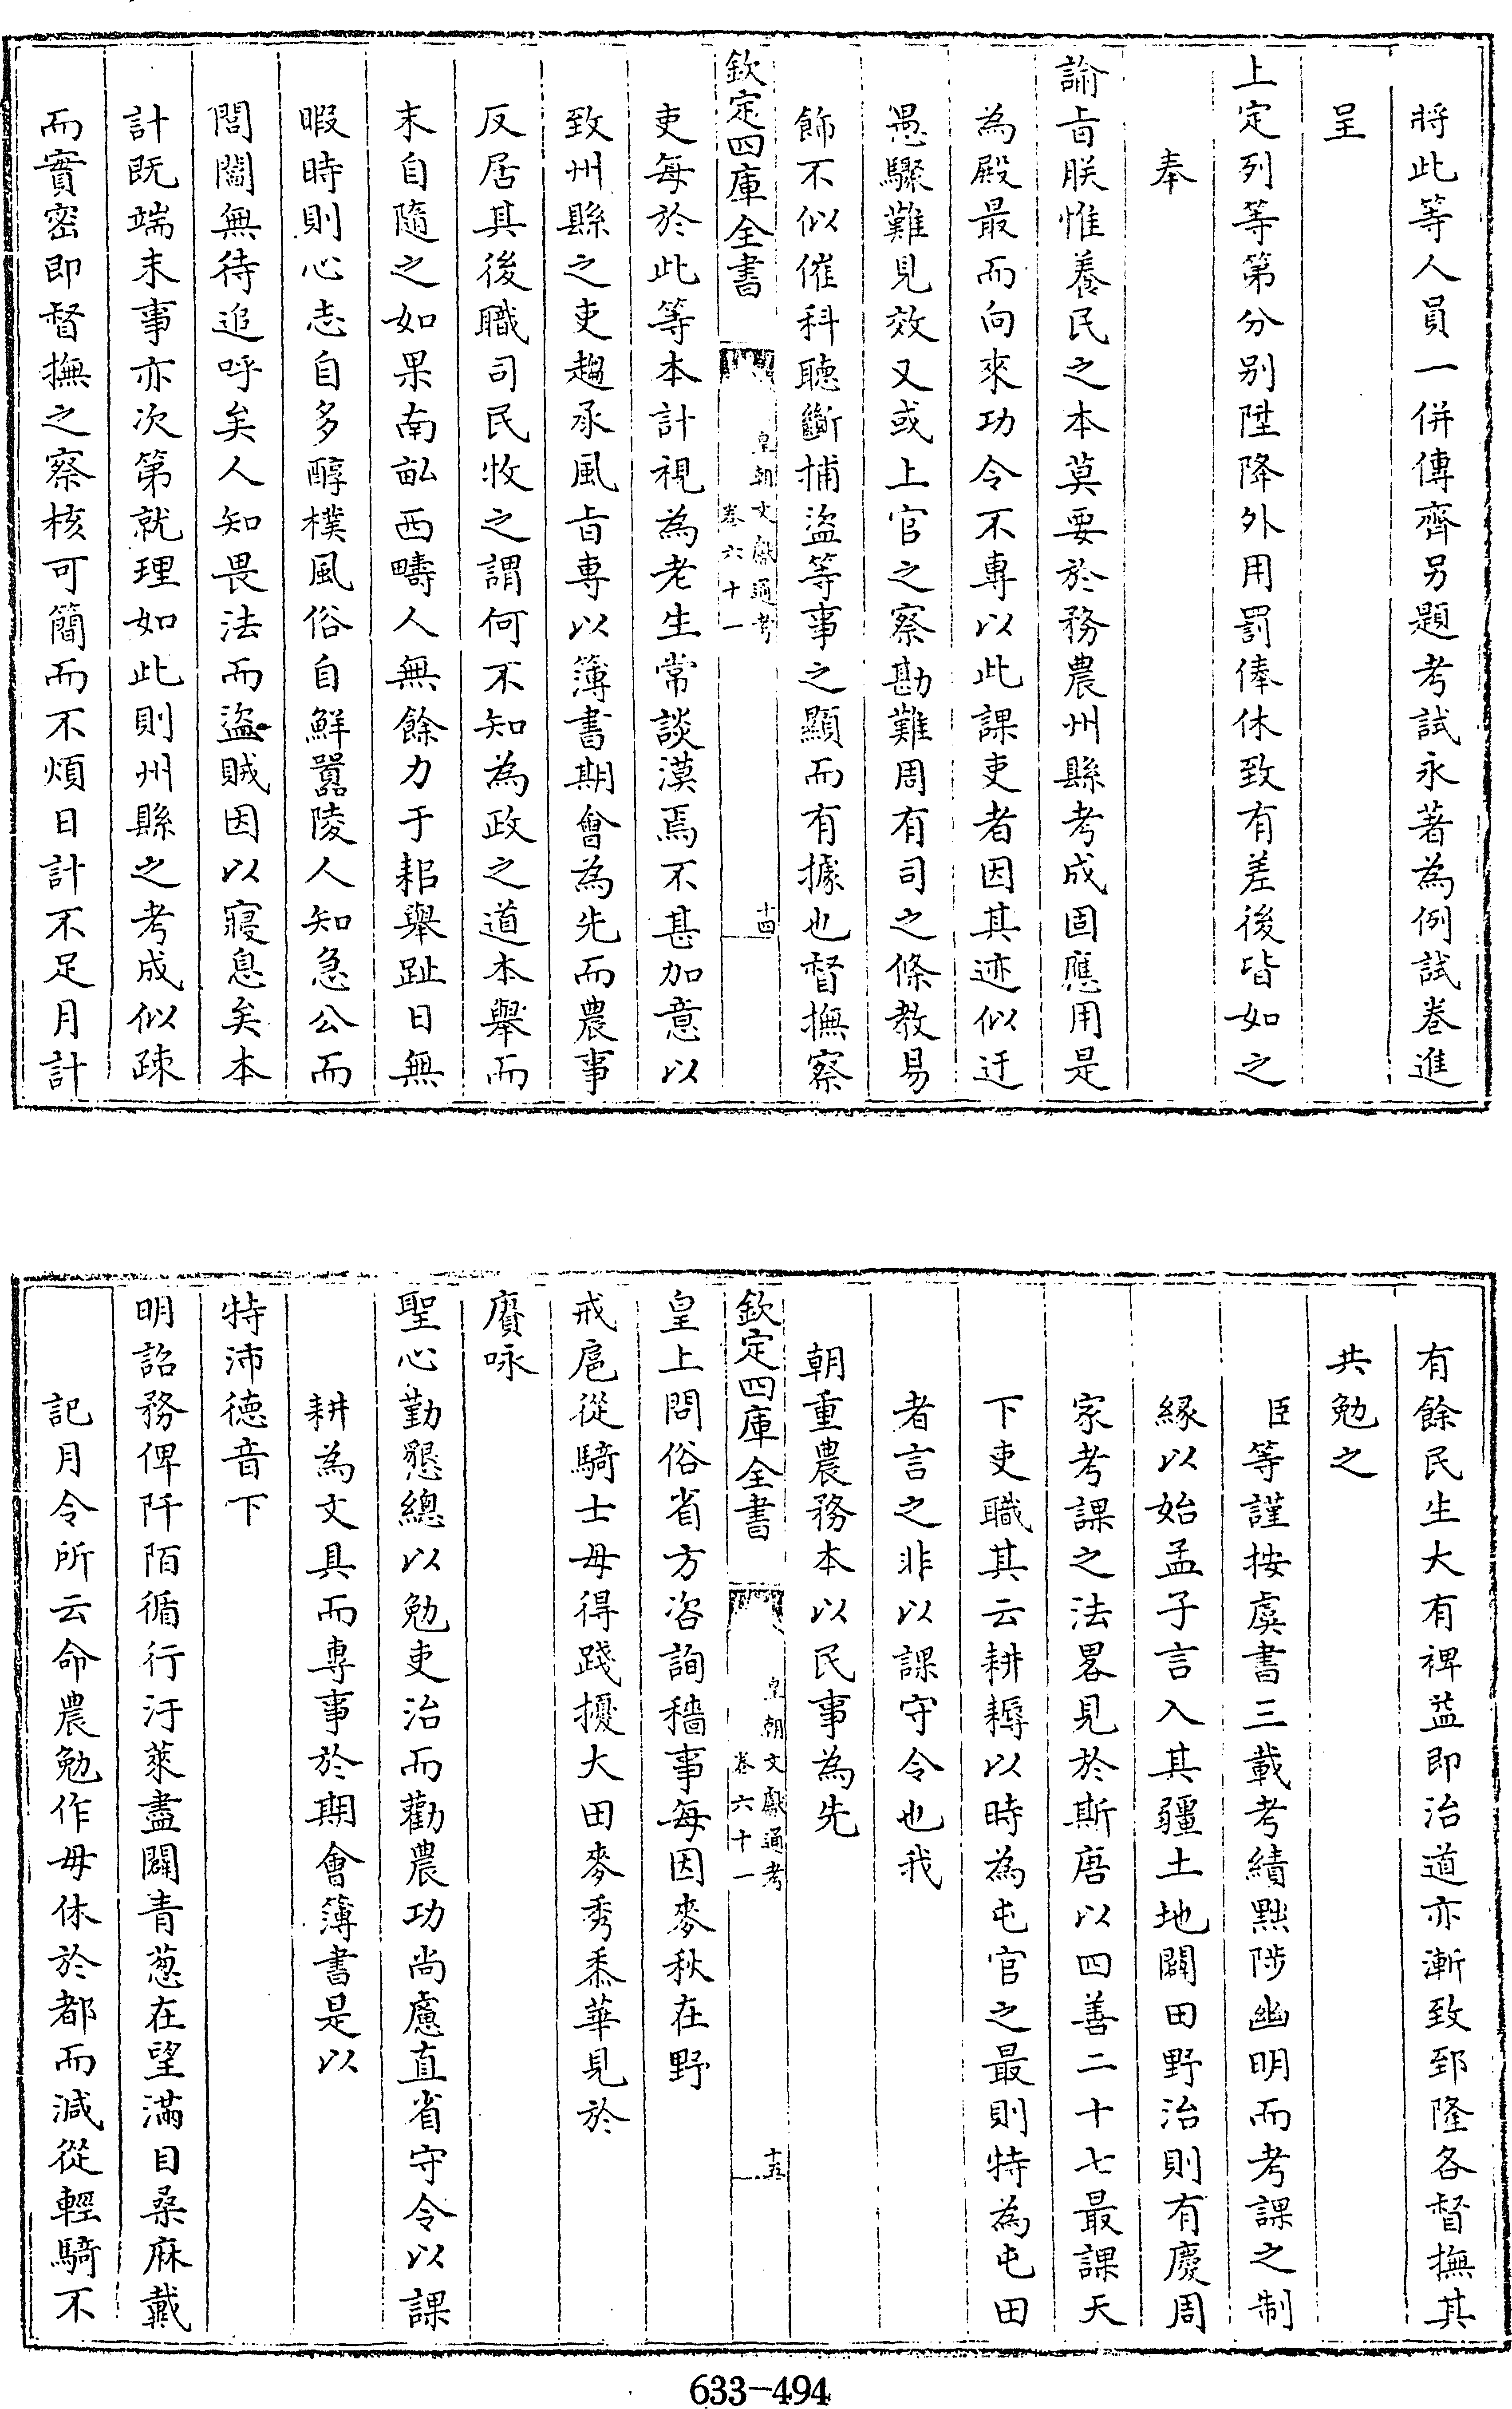 將此等人員一併傳齊另題考試永著為例試卷進
呈
上定列等第分别陞降外用罰俸休致有差後皆如之
奉
諭㫖朕惟養民之本莫要於務農州縣考成固應用是
為殿最而向來功令不專以此課吏者因其迹似迂
愚驟難見效又或上官之察勘難周有司之條教易
飾不似催科聽斷捕盜等事之顯而有據也督撫察
欽定四庫全書
皇朝文獻通考
卷六十一
十四
吏每於此等本計視為老生常談漠焉不甚加意以
致州縣之吏趨承風㫖專以簿書期會為先而農事
反居其後職司民牧之謂何不知為政之道本舉而
末自隨之如果南畝西疇人無餘力于耜舉趾日無
暇時則心志自多醇樸風俗自鮮囂陵人知急公而
閭閻無待追呼矣人知畏法而盜賊因以寢息矣本
計既端末事亦次第就理如此則州縣之考成似疎
而實密即督撫之察核可簡而不煩日計不足月計
有餘民生大有裨益即治道亦漸致郅隆各督撫其
共勉之
臣等謹按虞書三載考績黜陟幽明而考課之制
緣以始孟子言入其疆土地闢田野治則有慶周
家考課之法畧見於斯唐以四善二十七最課天
下吏職其云耕耨以時為屯官之最則特為屯田
者言之非以課守令也我
朝重農務本以民事為先
欽定四庫全書
皇朝文獻通考
卷六十一
十五
皇上問俗省方咨詢穡事每因麥秋在野
戒扈從騎士毋得踐擾大田麥秀黍華見於
賡咏
聖心勤懇總以勉吏治而勸農功尚慮直省守令以課
耕為文具而專事於期會簿書是以
特沛德音下
明詔務俾阡陌循行汙萊盡闢青葱在望滿目桑麻戴
記月令所云命農勉作毋休於都而減從輕騎不
633-494